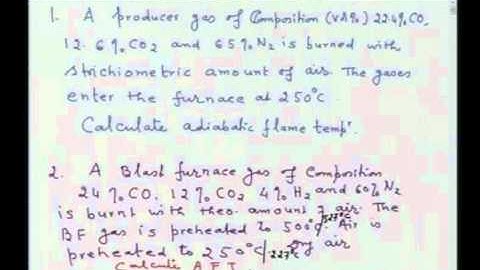 1. A producer gas of Composition (vol%) 22.4% CO,
12.6% CO2 and 65% N2 is burned with
stoichiometric amount of air. The gases
enter the furnace at 250°C.
Calculate adiabatic flame temp.
2. A Blast furnace gas of Composition
24% CO, 12% CO2 4% H2 and 60% N2
is burnt with theo. amount of air. The
BF gas is preheated to 500°C 327°C. Air is
preheated to 250°C/227°C dry air
Calculate A F T